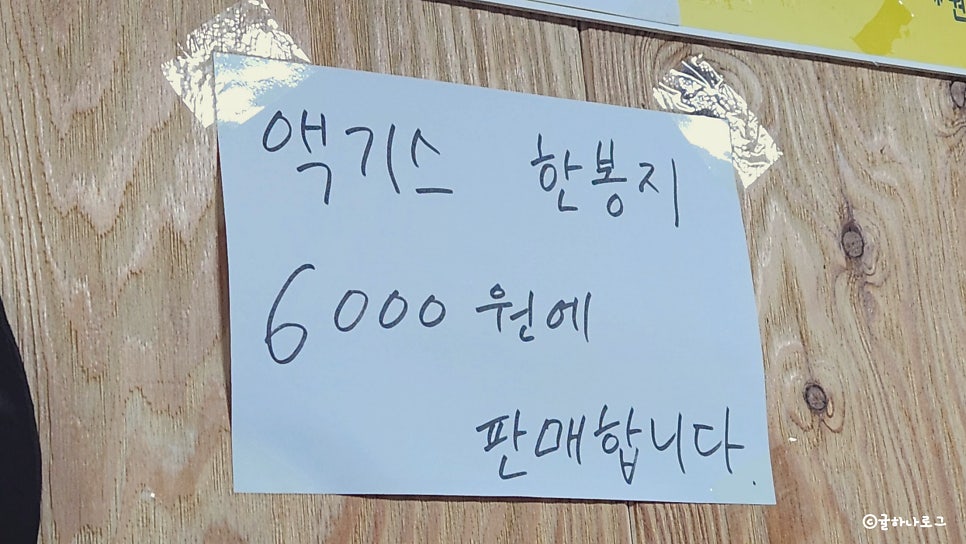 *원
액기스 한봉지
6000원에
판매합니다.
©귤하나로그